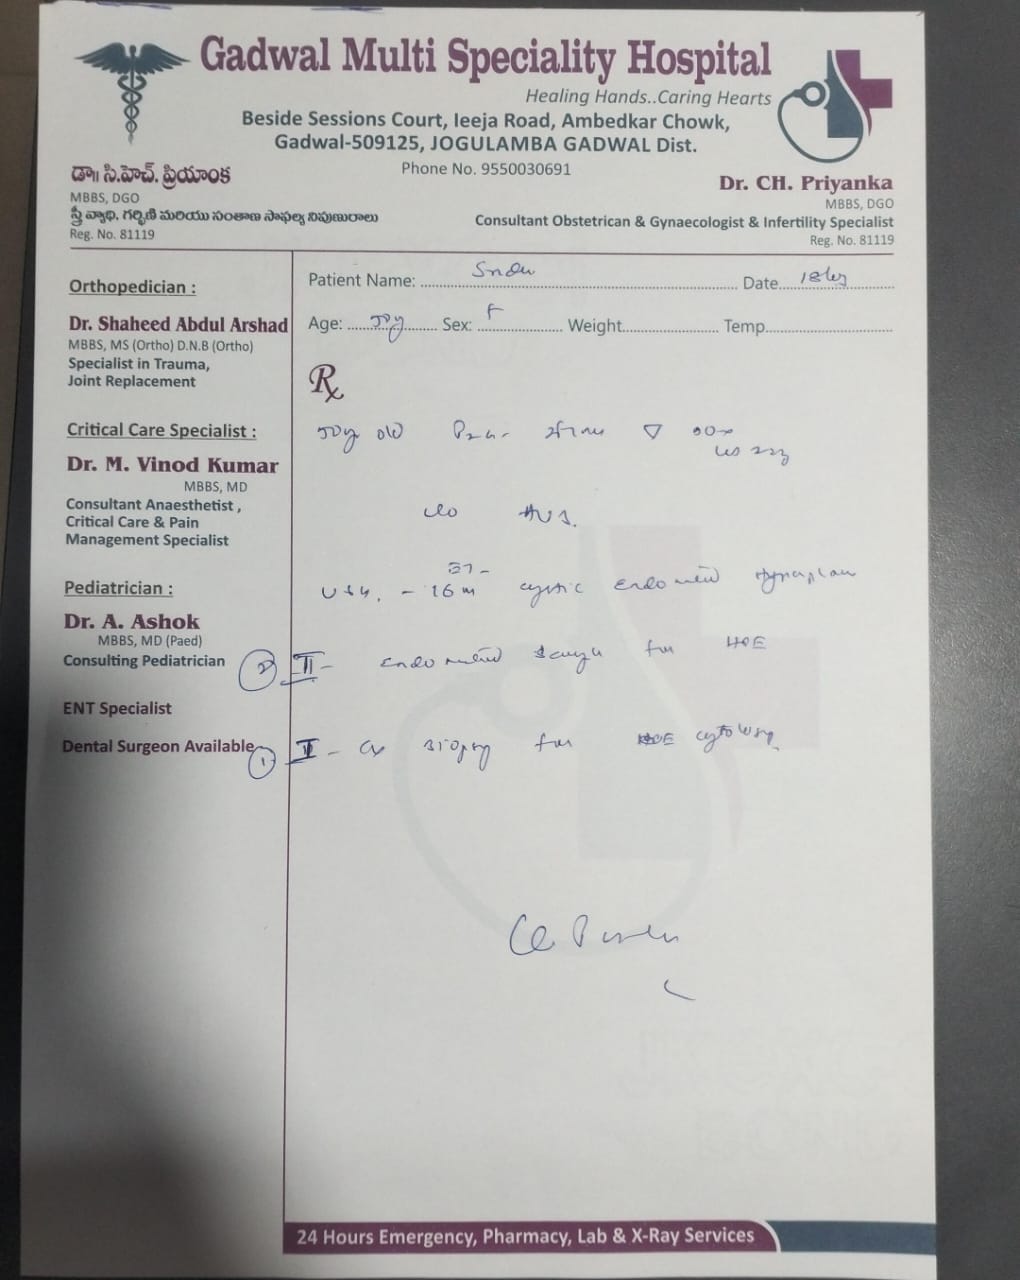 Gadwal Multi Speciality Hospital
Healing Hands..Caring Hearts
Beside Sessions Court, Ieeja Road, Ambedkar Chowk,
Gadwal-509125, JOGULAMBA GADWAL Dist.
Phone No. 9550030691
డా॥ సి.హెచ్. ప్రియాంక
MBBS, DGO
స్త్రీ వ్యాధి, గర్భిణి మరియు సంతాన సాఫల్య నిపుణురాలు
Reg. No. 81119
Dr. CH. Priyanka
MBBS, DGO
Consultant Obstetrican & Gynaecologist & Infertility Specialist
Reg. No. 81119
Orthopedician :
Dr. Shaheed Abdul Arshad
MBBS, MS (Ortho) D.N.B (Ortho)
Specialist in Trauma,
Joint Replacement
Critical Care Specialist :
Dr. M. Vinod Kumar
MBBS, MD
Consultant Anaesthetist ,
Critical Care & Pain
Management Specialist
Pediatrician :
Dr. A. Ashok
MBBS, MD (Paed)
Consulting Pediatrician
ENT Specialist
Dental Surgeon Available
Patient Name: Date
Age: Sex: F Weight Temp
Rx
old
ET-
16 m cystic
② II - for HPE
① I - Cx Biopsy for cytology
24 Hours Emergency, Pharmacy, Lab & X-Ray Services